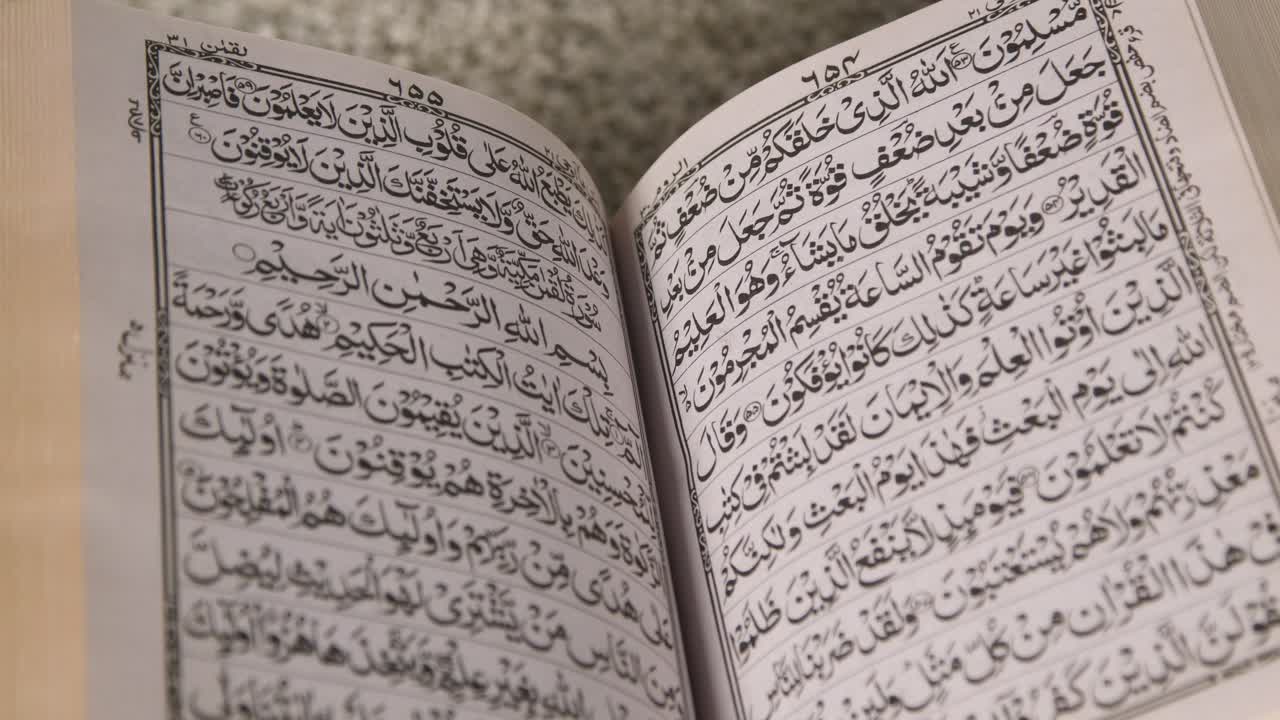 ٦٥٤
مُّسْلِمُوْنَ ۝٥٣ اَللّٰهُ الَّذِيْ خَلَقَكُمْ مِّنْ ضُعْفٍ ثُمَّ
جَعَلَ مِنْۢ بَعْدِ ضُعْفٍ قُوَّةً ثُمَّ جَعَلَ مِنْۢ بَعْدِ
قُوَّةٍ ضُعْفًا وَّشَيْبَةً ؕ يَخْلُقُ مَا يَشَآءُ ۚ وَهُوَ الْعَلِيْمُ
الْقَدِيْرُ ۝٥٤ وَيَوْمَ تَقُوْمُ السَّاعَةُ يُقْسِمُ الْمُجْرِمُوْنَ ۙ
مَا لَبِثُوْا غَيْرَ سَاعَةٍ ؕ كَذٰلِكَ كَانُوْا يُؤْفَكُوْنَ ۝٥٥ وَقَالَ
الَّذِيْنَ اُوْتُوا الْعِلْمَ وَالْاِيْمَانَ لَقَدْ لَبِثْتُمْ فِيْ كِتٰبِ
اللّٰهِ اِلٰى يَوْمِ الْبَعْثِ ؗ فَهٰذَا يَوْمُ الْبَعْثِ وَلٰكِنَّكُمْ
كُنْتُمْ لَا تَعْلَمُوْنَ ۝٥٦ فَيَوْمَئِذٍ لَّا يَنْفَعُ الَّذِيْنَ ظَلَمُوْا
مَعْذِرَتُهُمْ وَلَا هُمْ يُسْتَعْتَبُوْنَ ۝٥٧ وَلَقَدْ ضَرَبْنَا لِلنَّاسِ
فِيْ هٰذَا الْقُرْاٰنِ مِنْ كُلِّ مَثَلٍ ؕ وَلَئِنْ
لَّيَقُوْلَنَّ الَّذِيْنَ كَفَرُوْۤا
لقمٰن ٣١
٦٥٥
يَطْبَعُ اللّٰهُ عَلٰى قُلُوْبِ الَّذِيْنَ لَا يَعْلَمُوْنَ ۝٥٩ فَاصْبِرْ اِنَّ
وَعْدَ اللّٰهِ حَقٌّ وَّلَا يَسْتَخِفَّنَّكَ الَّذِيْنَ لَا يُوْقِنُوْنَ ۝٦٠
سُوْرَةُ لُقْمٰنَ مَكِّيَّةٌ وَّهِيَ اَرْبَعٌ وَّثَلٰثُوْنَ اٰيَةً وَّاَرْبَعُ رُكُوْعَاتٍ
بِسْمِ اللّٰهِ الرَّحْمٰنِ الرَّحِيْمِ
الٓمّٓ ۝١ تِلْكَ اٰيٰتُ الْكِتٰبِ الْحَكِيْمِ ۝٢ هُدًى وَّرَحْمَةً
لِّلْمُحْسِنِيْنَ ۝٣ الَّذِيْنَ يُقِيْمُوْنَ الصَّلٰوةَ وَيُؤْتُوْنَ
الزَّكٰوةَ وَهُمْ بِالْاٰخِرَةِ هُمْ يُوْقِنُوْنَ ۝٤ اُولٰٓئِكَ
عَلٰى هُدًى مِّنْ رَّبِّهِمْ وَاُولٰٓئِكَ هُمُ الْمُفْلِحُوْنَ ۝٥
وَمِنَ النَّاسِ مَنْ يَّشْتَرِيْ لَهْوَ الْحَدِيْثِ لِيُضِلَّ
اللّٰهِ بِغَيْرِ عِلْمٍ ۖ وَّيَتَّخِذَهَا هُزُوًا ؕ اُولٰٓئِكَ